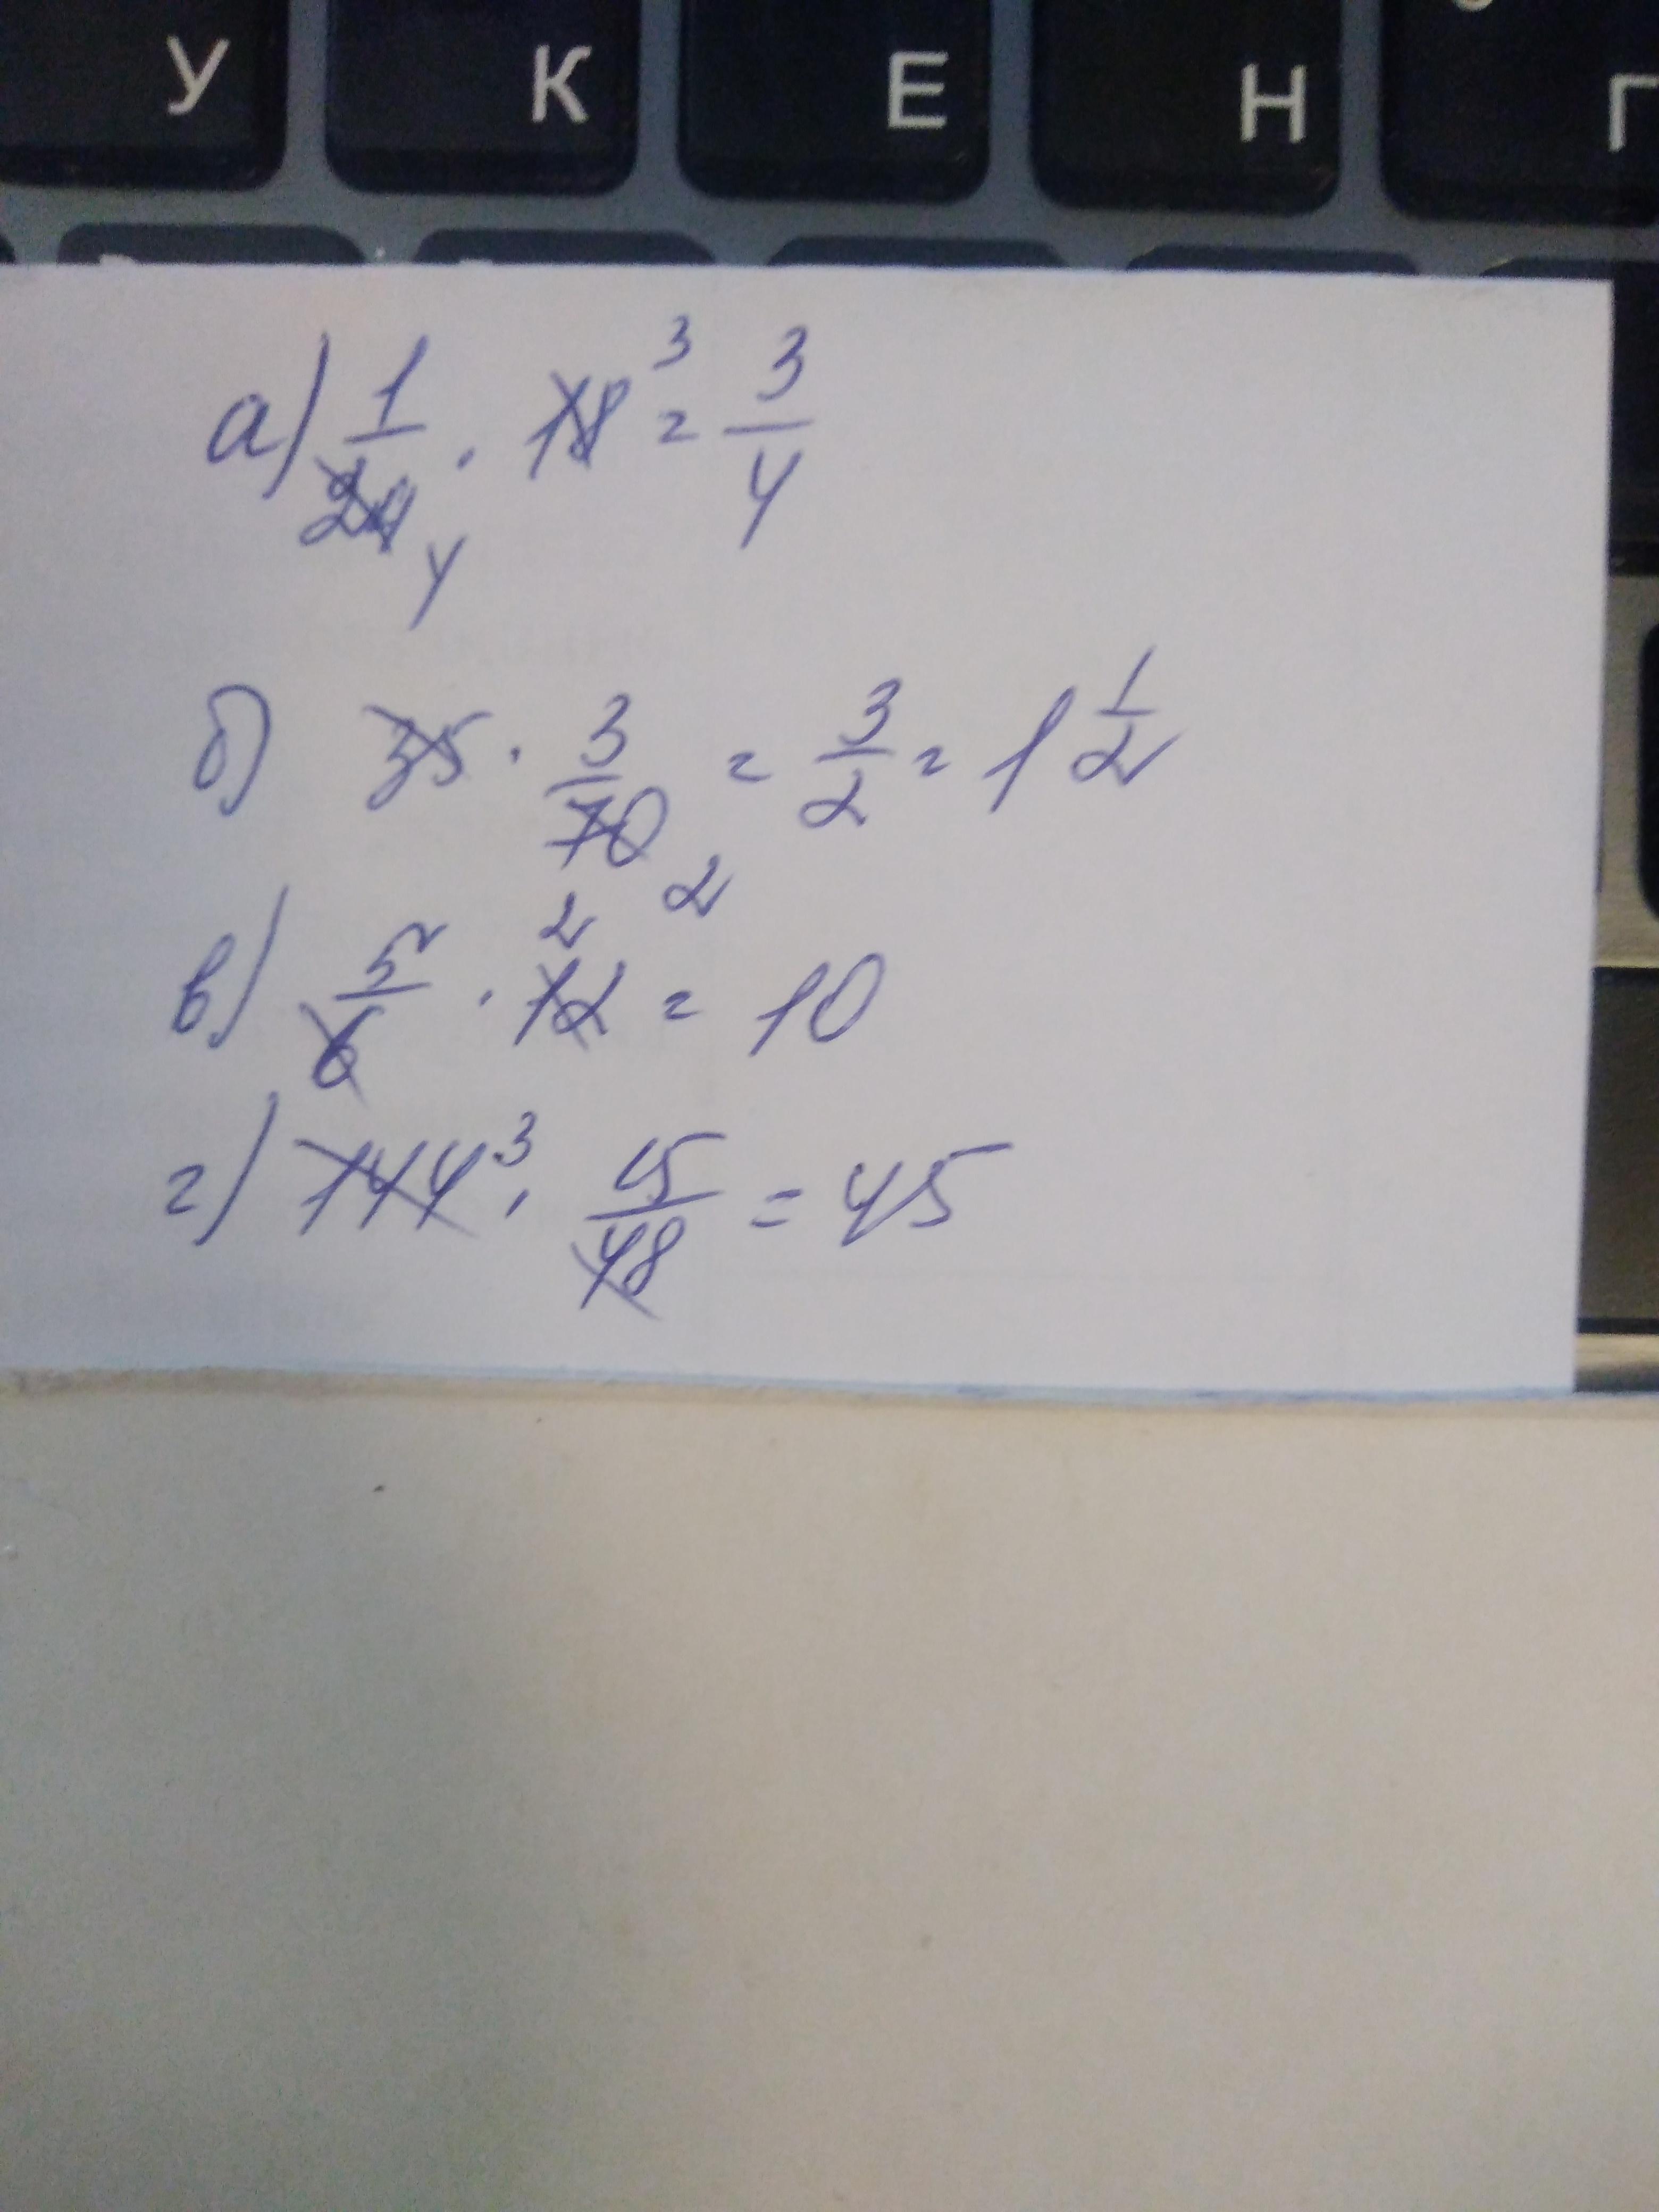 У К Е Н Г
а) 1/24 · 18 ³ = 3/4
4
б) 35 · 3/70 = 3/2 = 1 1/2
2
2
в) 5/6 · 12 = 10
г) 144 ³ · 15/48 = 45